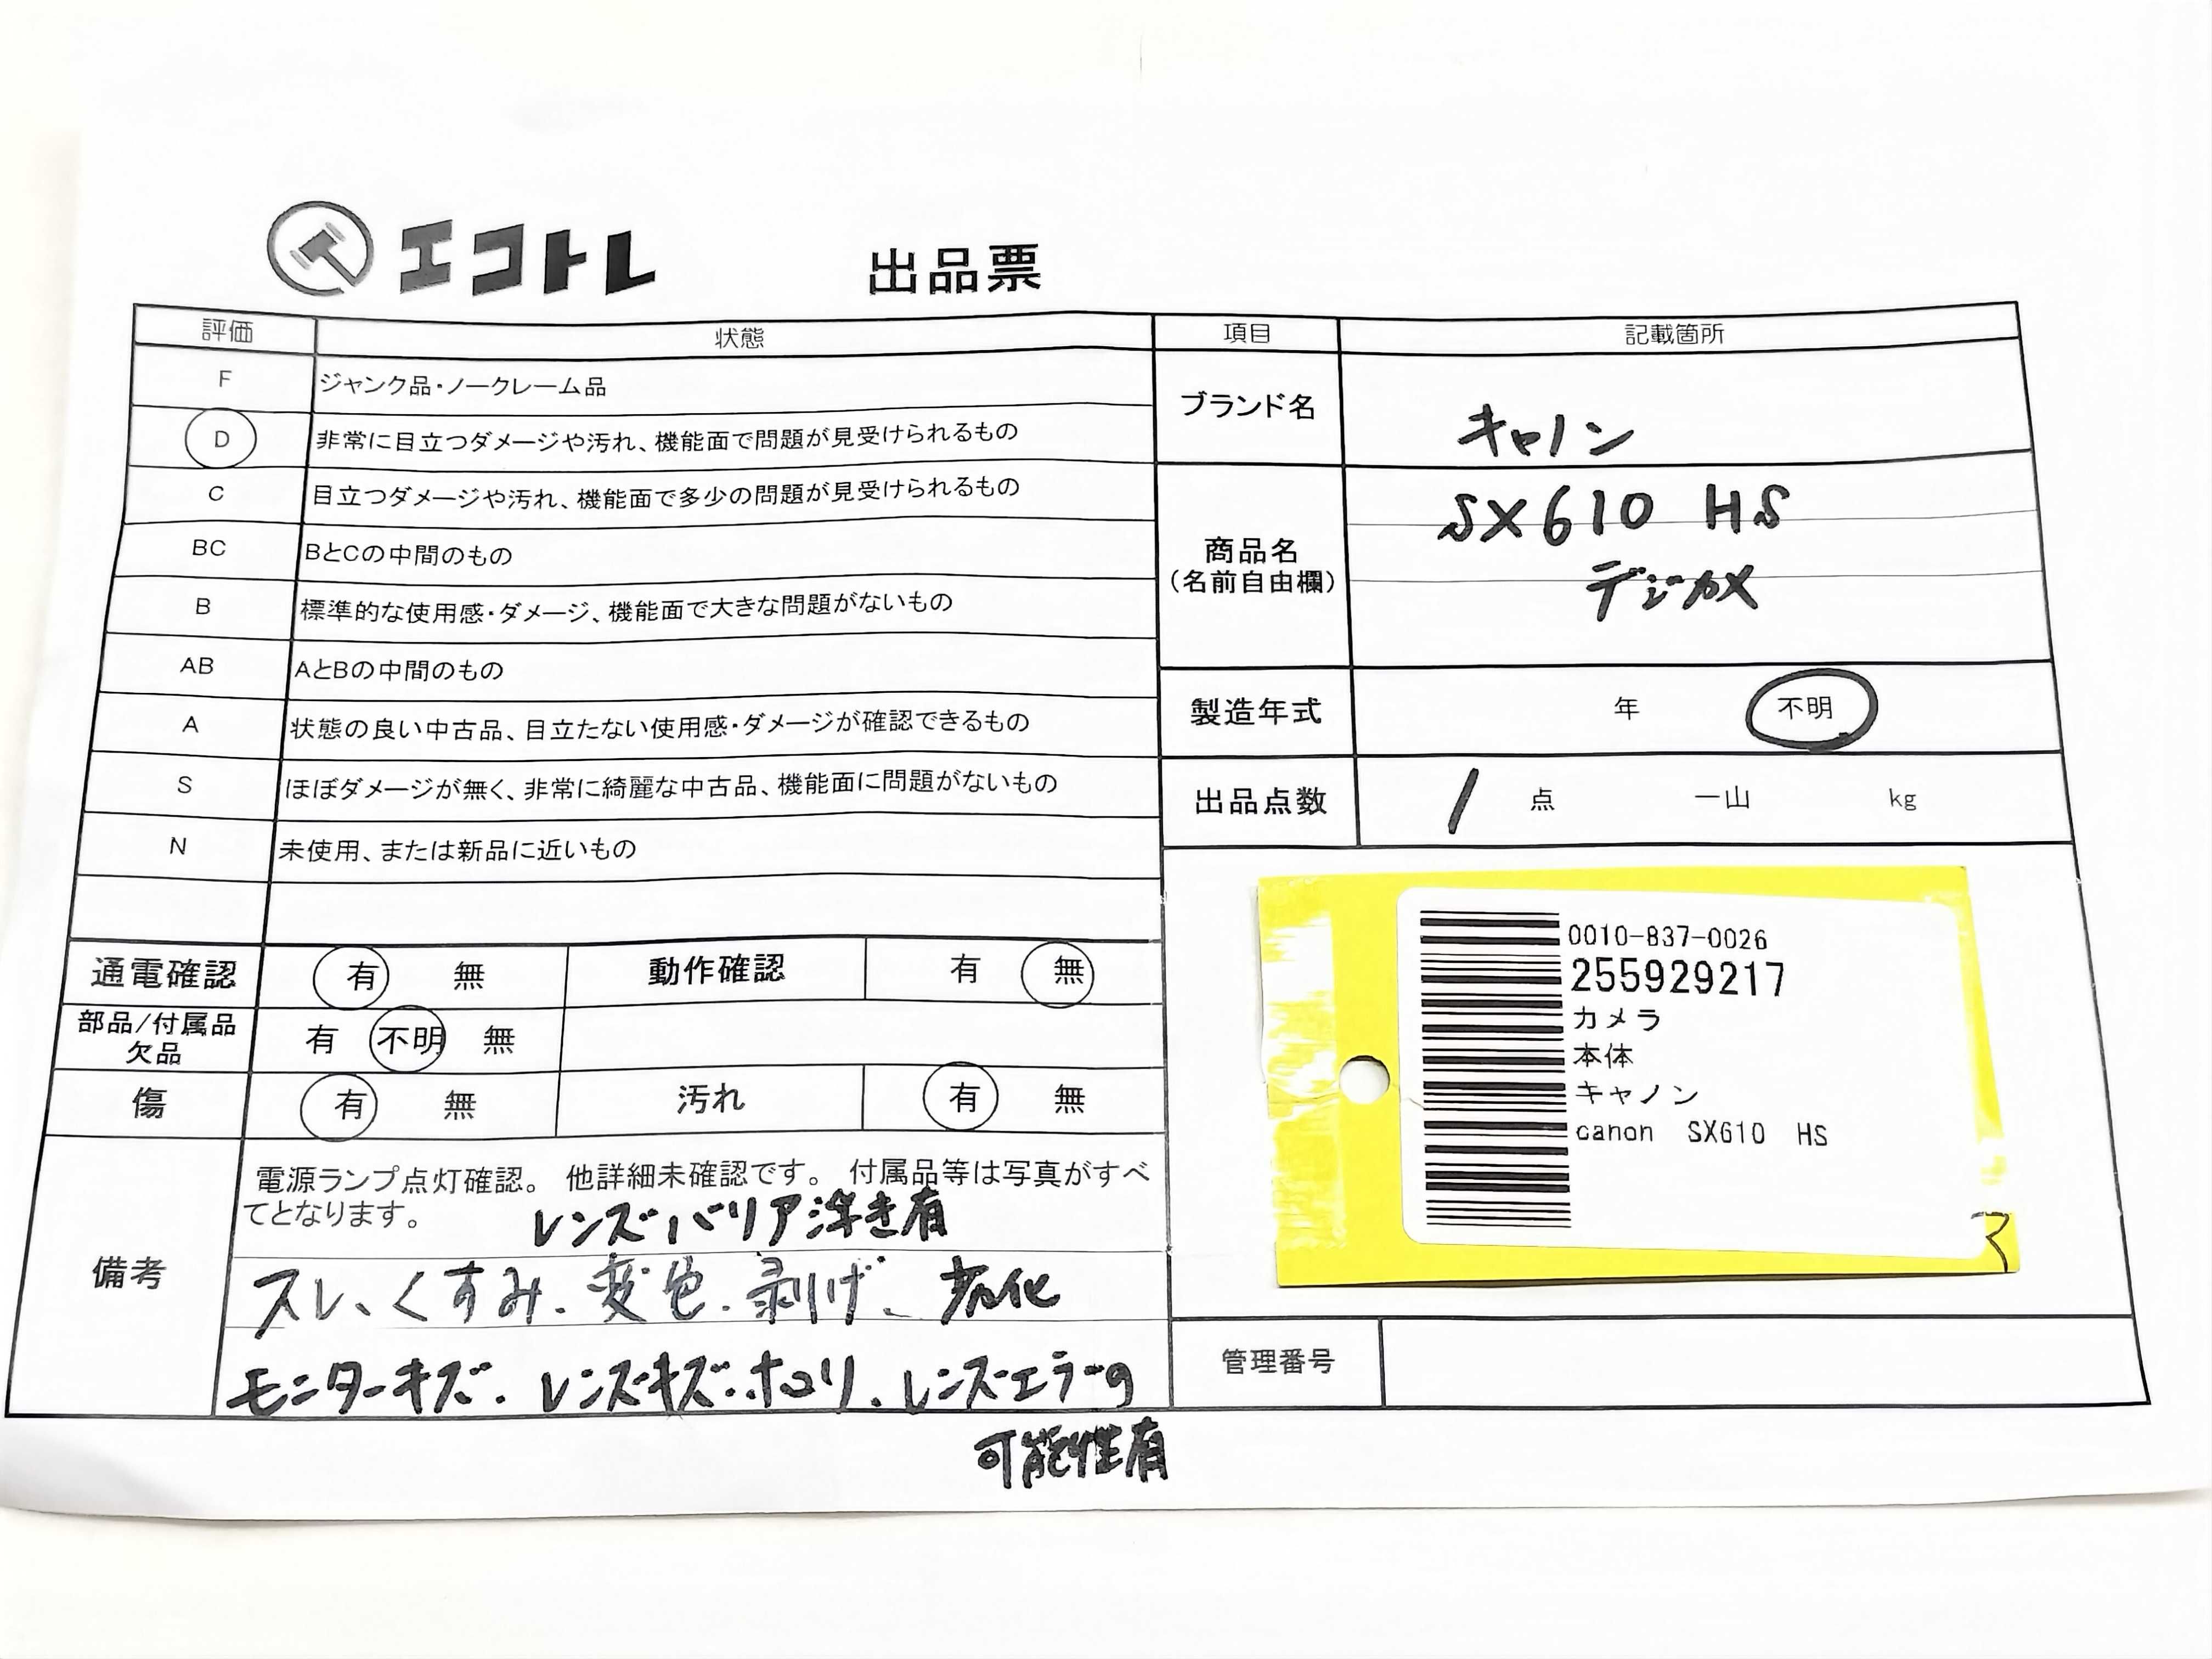 エコトレ 出品票
評価 状態
F ジャンク品・ノークレーム品
D 非常に目立つダメージや汚れ、機能面で問題が見受けられるもの
C 目立つダメージや汚れ、機能面で多少の問題が見受けられるもの
BC BとCの中間のもの
B 標準的な使用感・ダメージ、機能面で大きな問題がないもの
AB AとBの中間のもの
A 状態の良い中古品、目立たない使用感・ダメージが確認できるもの
S ほぼダメージが無く、非常に綺麗な中古品、機能面に問題がないもの
N 未使用、または新品に近いもの
通電確認 有 無 動作確認 有 無
部品/付属品
欠品 有 不明 無
傷 有 無 汚れ 有 無
備考
電源ランプ点灯確認。 他詳細未確認です。 付属品等は写真がすべ
てとなります。 レンズバリア浮き有
スレ、くすみ、変色、剥げ、劣化
モニターキズ、レンズキズ・ホコリ、レンズエラーの
可能性有
項目 記載箇所
ブランド名 キャノン
商品名
(名前自由欄)
SX610 HS
デジカメ
製造年式 年 不明
出品点数 1 点 一山 kg
0010-837-0026
255929217
カメラ
本体
キャノン
canon SX610 HS
管理番号